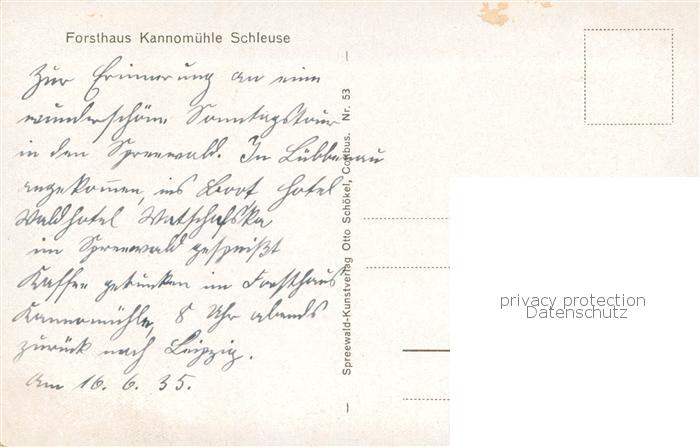 Forsthaus Kannomühle Schleuse
Zur Erinnerung an eine
wunderschöne Sonntagstour
in den Spreewald. In Lübbenau
angekommen, ins Boot Hotel
Waldhotel Wotschofska
im Spreewald gespeißt
Kaffee getrunken im Forsthaus
Kannomühle, 8 Uhr abends
zurück nach Leipzig.
Am 16. 6. 35.
Spreewald-Kunstverlag Otto Schökel, Cottbus. Nr. 53
privacy protection
Datenschutz